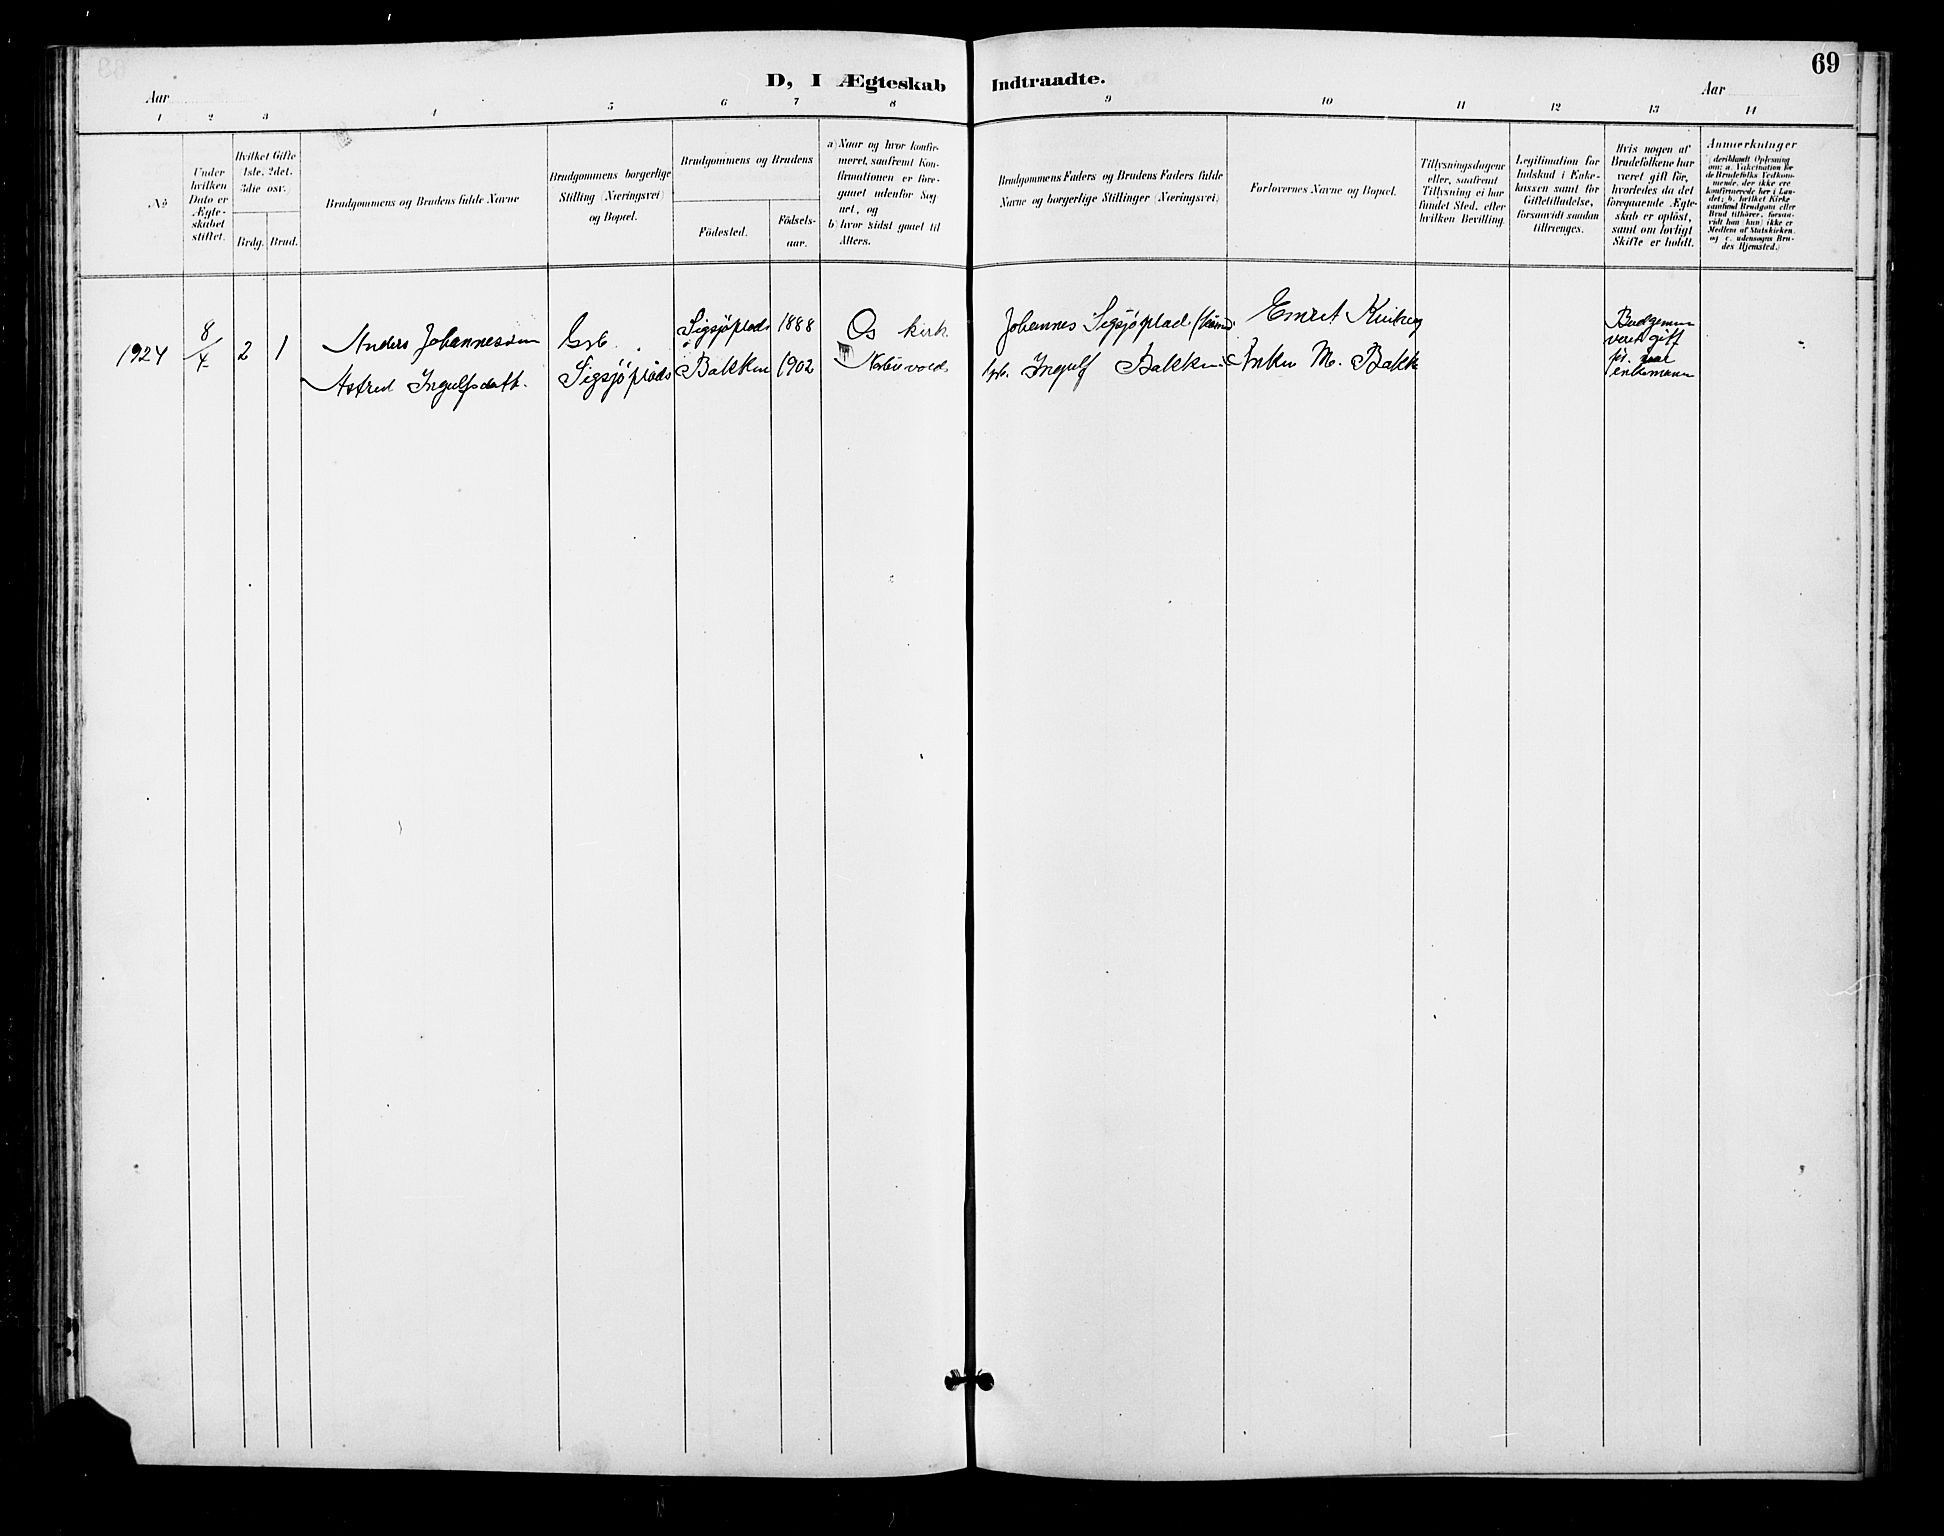 69
D, I Ægteskab Indtraadte.
Aar
Aar
1 2 3 4 5 6 7 8 9 10 11 12 13 14
No
Under
hvilken
Dato er
Ægte-
skabet
stiftet.
Hvilket Gifte
1ste, 2det,
3die osv.)
Brdg. Brud.
Brudgommens og Brudens fulde Navne
Brudgommens borgerlige
Stilling (Næringsvei)
og Bopæl.
Brudgommens og Brudens
Födested.
Födsels-
aar.
a) Naar og hvor konfir-
meret, saafremt Kon-
firmationen er fore-
gaaet udenfor Sog-
net, og
b) hvor sidst gaaet til
Alters.
Brudgommens Faders og Brudens Faders fulde
Navne og borgerlige Stillinger (Næringsvei)
Forlovernes Navne og Bopæl.
Tillysningsdagene
eller, saafremt
Tillysning ei har
fundet Sted, efter
hvilken Bevilling
Legitimation for
Indskud i Enke-
kassen samt for
Giftetilladelse,
forsaavidt saadan
tiltrænges.
Hvis nogen af
Brudefolkene har
været gift för,
hvorledes da det
foregaaende Ægte-
skab er oplöst,
samt om lovligt
Skifte er holdt.
Anmærkninger
(deriblandt Oplysning
om: a. Vakcination for
de Brudefolks Vedkom-
mende, der ikke ere
konfirmerede her i Lan-
det; b. hvilket Kirke
samfund Brudgom eller
Brud tilhörer, forsaa-
vidt han (hun) ikke er
Medlem af Statskirken.
og c. udensogns Bru-
des Hjemsted.)
1924 8/4 2 1
Anders Johannessen
Astrid Ingulfsdatt.
Gsb.
Sigsjöplads
Sigsjöplads 1888
Bakken 1902
Os kirk
Johannes Sigsjöplad
Gsb. Ingulf Bakken
Embret
Anken M. Bakk
Brudgommen
vært gift
för. var
enkemann